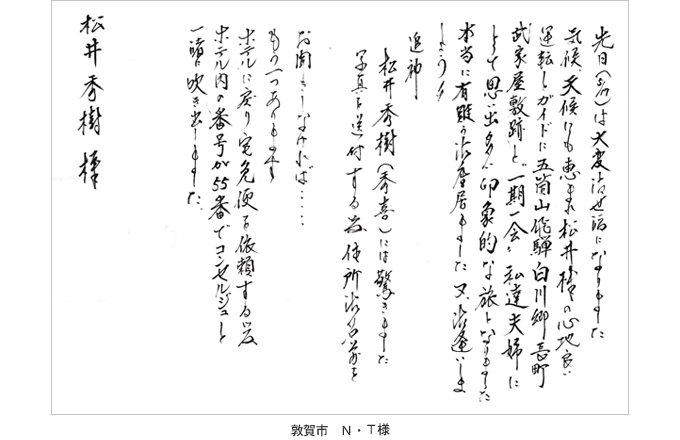 先日は大変お世話になりました
気候天候にも恵まれ松井様の心地良い
運転とガイドに五箇山飛騨白川郷長町
武家屋敷跡と"一期一会"私達夫婦に
とって思い出多い印象的な旅となりました
本当に有難うございました 又、お逢いしま
しょう!!
追伸
松井秀樹(秀喜)には驚きました
写真を送付する為住所お名前を
お聞きしなければ・・・・
もう一つあります
ホテルに戻り宅急便を依頼する為
ホテル内の番号が55番でコンセルジュと
一緒に吹き出しました。
松井秀樹 様
敦賀市 N・T様